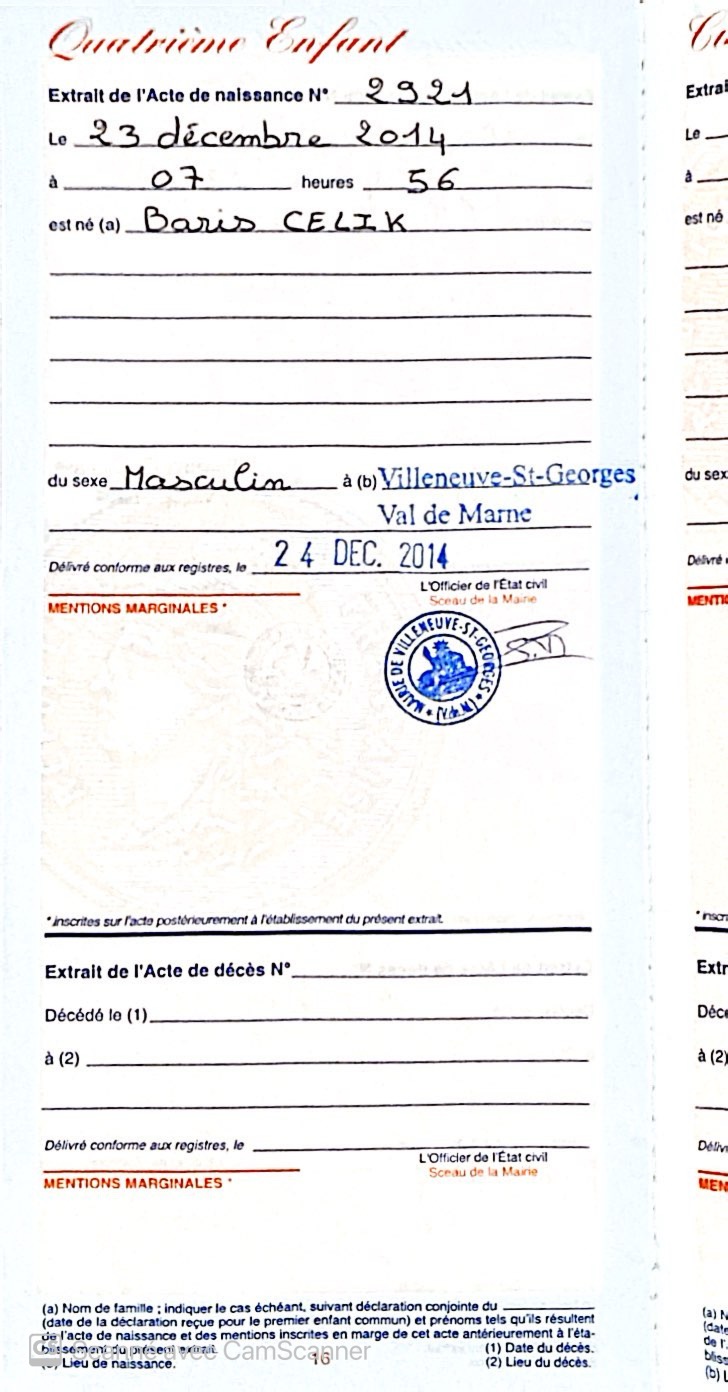 Quatrième Enfant
Extrait de l'Acte de naissance N° 2921
Le 23 décembre 2014
à 07 heures 56
est né (a) Baris CELIK
du sexe Masculin à (b) Villeneuve-St-Georges
Val de Marne
Délivré conforme aux registres, le 24 DEC. 2014
L'Officier de l'État civil
Sceau de la Mairie
MENTIONS MARGINALES *
MAIRIE DE VILLENEUVE-ST-GEORGES
* inscrites sur l'acte postérieurement à l'établissement du présent extrait.
Extrait de l'Acte de décès N°
Décédé le (1)
à (2)
Délivré conforme aux registres, le
L'Officier de l'État civil
Sceau de la Mairie
MENTIONS MARGINALES *
(a) Nom de famille ; indiquer le cas échéant, suivant déclaration conjointe du
(date de la déclaration reçue pour le premier enfant commun) et prénoms tels qu'ils résultent
de l'acte de naissance et des mentions inscrites en marge de cet acte antérieurement à l'éta-
blissement du présent extrait. (1) Date du décès.
(b) Lieu de naissance. 16 (2) Lieu du décès.
CS Scanné avec CamScanner
Extrai
Le
à
est né
du sex
Délivré
MENTI
Extr
Décé
à (2)
Déliv
MEN
(a) N
(date
de l'
bliss
(b) L